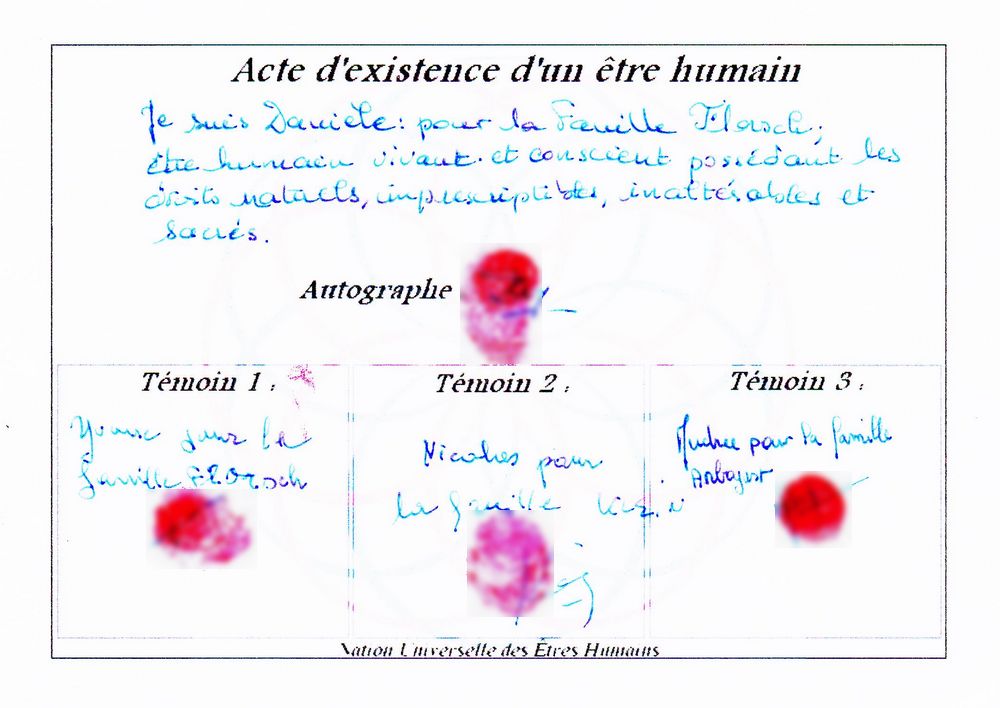 Acte d'existence d'un être humain
Je suis Danièle: pour la Famille Florsch;
être humain vivant et conscient possédant les
droits naturels, imprescriptibles, inaltérables et
sacrés.
Autographe
Témoin 1 :
Yvonne pour la
famille FLORSCH
Témoin 2 :
Nicolas pour
la famille
Témoin 3 :
pour la famille
Nation Universelle des Etres Humains